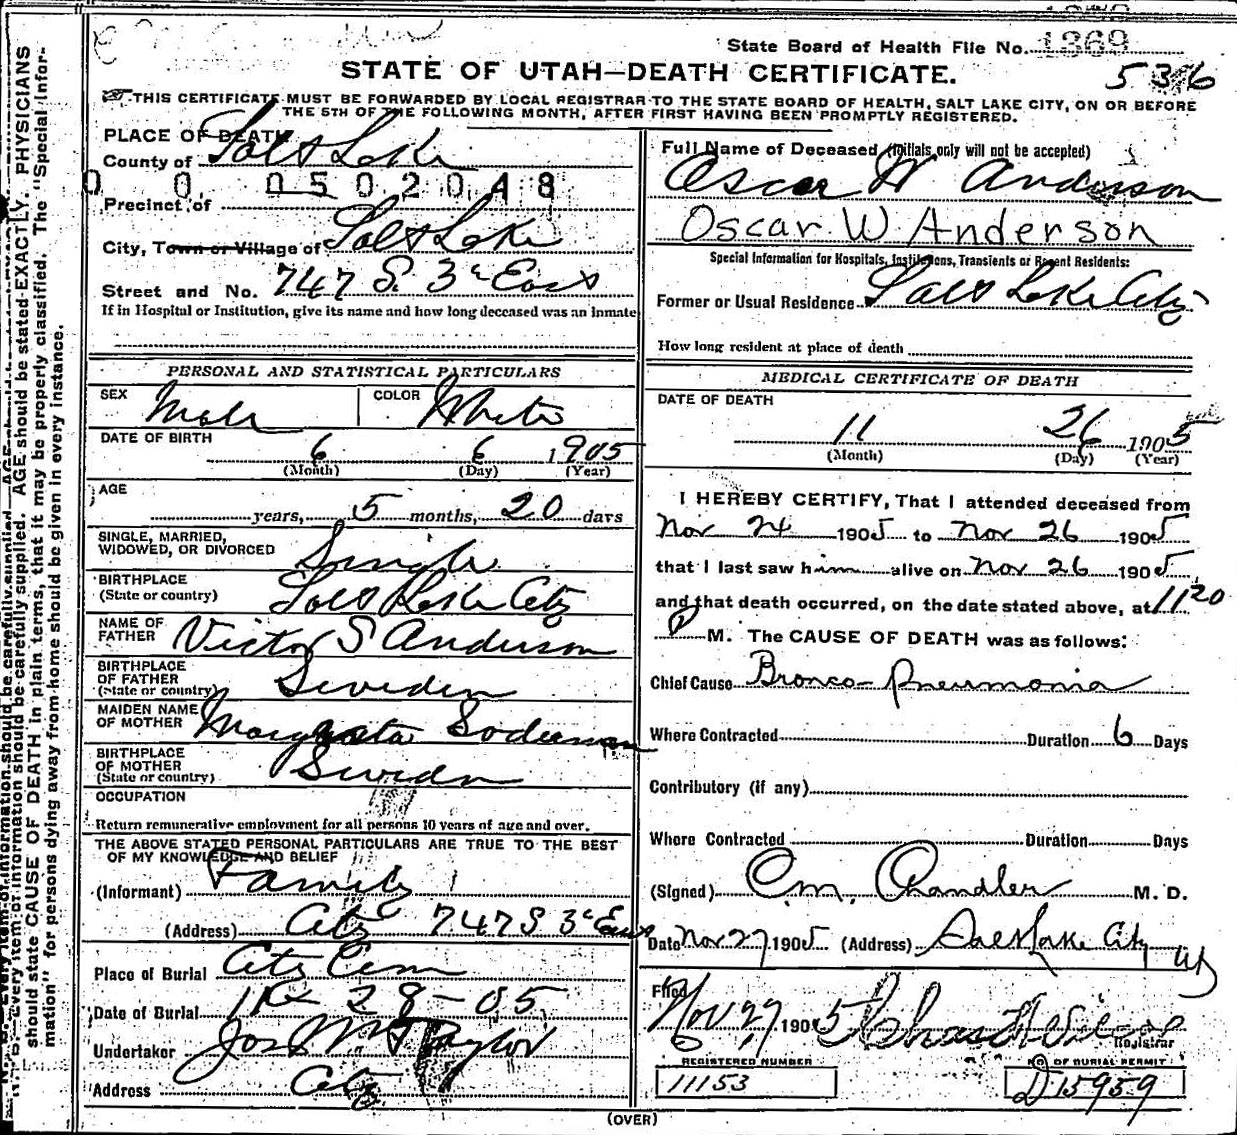 State Board of Health File No. 1369
STATE OF UTAH—DEATH CERTIFICATE.
536
THIS CERTIFICATE MUST BE FORWARDED BY LOCAL REGISTRAR TO THE STATE BOARD OF HEALTH, SALT LAKE CITY, ON OR BEFORE
THE 5TH OF THE FOLLOWING MONTH, AFTER FIRST HAVING BEEN PROMPTLY REGISTERED.
PLACE OF DEATH
County of Salt Lake
0 0 0502048
Precinct of
City, Town or Village of Salt Lake
Street and No. 747 S. 3d East
If in Hospital or Institution, give its name and how long deceased was an inmate
Full Name of Deceased (Initials only will not be accepted)
Oscar W Anderson
Oscar W Anderson
Special Information for Hospitals, Institutions, Transients or Recent Residents:
Former or Usual Residence Salt Lake City
How long resident at place of death
PERSONAL AND STATISTICAL PARTICULARS
SEX Male COLOR White
DATE OF BIRTH
6 6 1905
(Month) (Day) (Year)
AGE
years, 5 months, 20 days
SINGLE, MARRIED,
WIDOWED, OR DIVORCED Single
BIRTHPLACE
(State or country) Salt Lake City
NAME OF
FATHER Victor S Anderson
BIRTHPLACE
OF FATHER
(State or country) Sweden
MAIDEN NAME
OF MOTHER Margreta Soderman
BIRTHPLACE
OF MOTHER
(State or country) Sweden
OCCUPATION
Return remunerative employment for all persons 10 years of age and over.
THE ABOVE STATED PERSONAL PARTICULARS ARE TRUE TO THE BEST
OF MY KNOWLEDGE AND BELIEF
(Informant) Family
(Address) City 747 S 3d East
Place of Burial City Cem
Date of Burial 11 28-05
Undertaker Jos Wm Taylor
Address City
MEDICAL CERTIFICATE OF DEATH
DATE OF DEATH
11 26 1905
(Month) (Day) (Year)
I HEREBY CERTIFY, That I attended deceased from
Nov 24 1905 to Nov 26 1905
that I last saw him alive on Nov 26 1905
and that death occurred, on the date stated above, at 11 20
P M. The CAUSE OF DEATH was as follows:
Chief Cause Bronco-pneumonia
Where Contracted Duration 6 Days
Contributory (if any)
Where Contracted Duration Days
(Signed) C.M. Chandler M. D.
Date Nov 27 1905 (Address) Salt Lake City Ut
Filed
Nov 27 1905 Chas H Wilcox
Registrar
REGISTERED NUMBER
11153
NO OF BURIAL PERMIT
D 15959
(OVER)
N. B. Every item of information should be carefully supplied. AGE should be stated EXACTLY. PHYSICIANS
should state CAUSE OF DEATH in plain terms, that it may be properly classified. The "Special Infor-
mation" for persons dying away from home should be given in every instance.